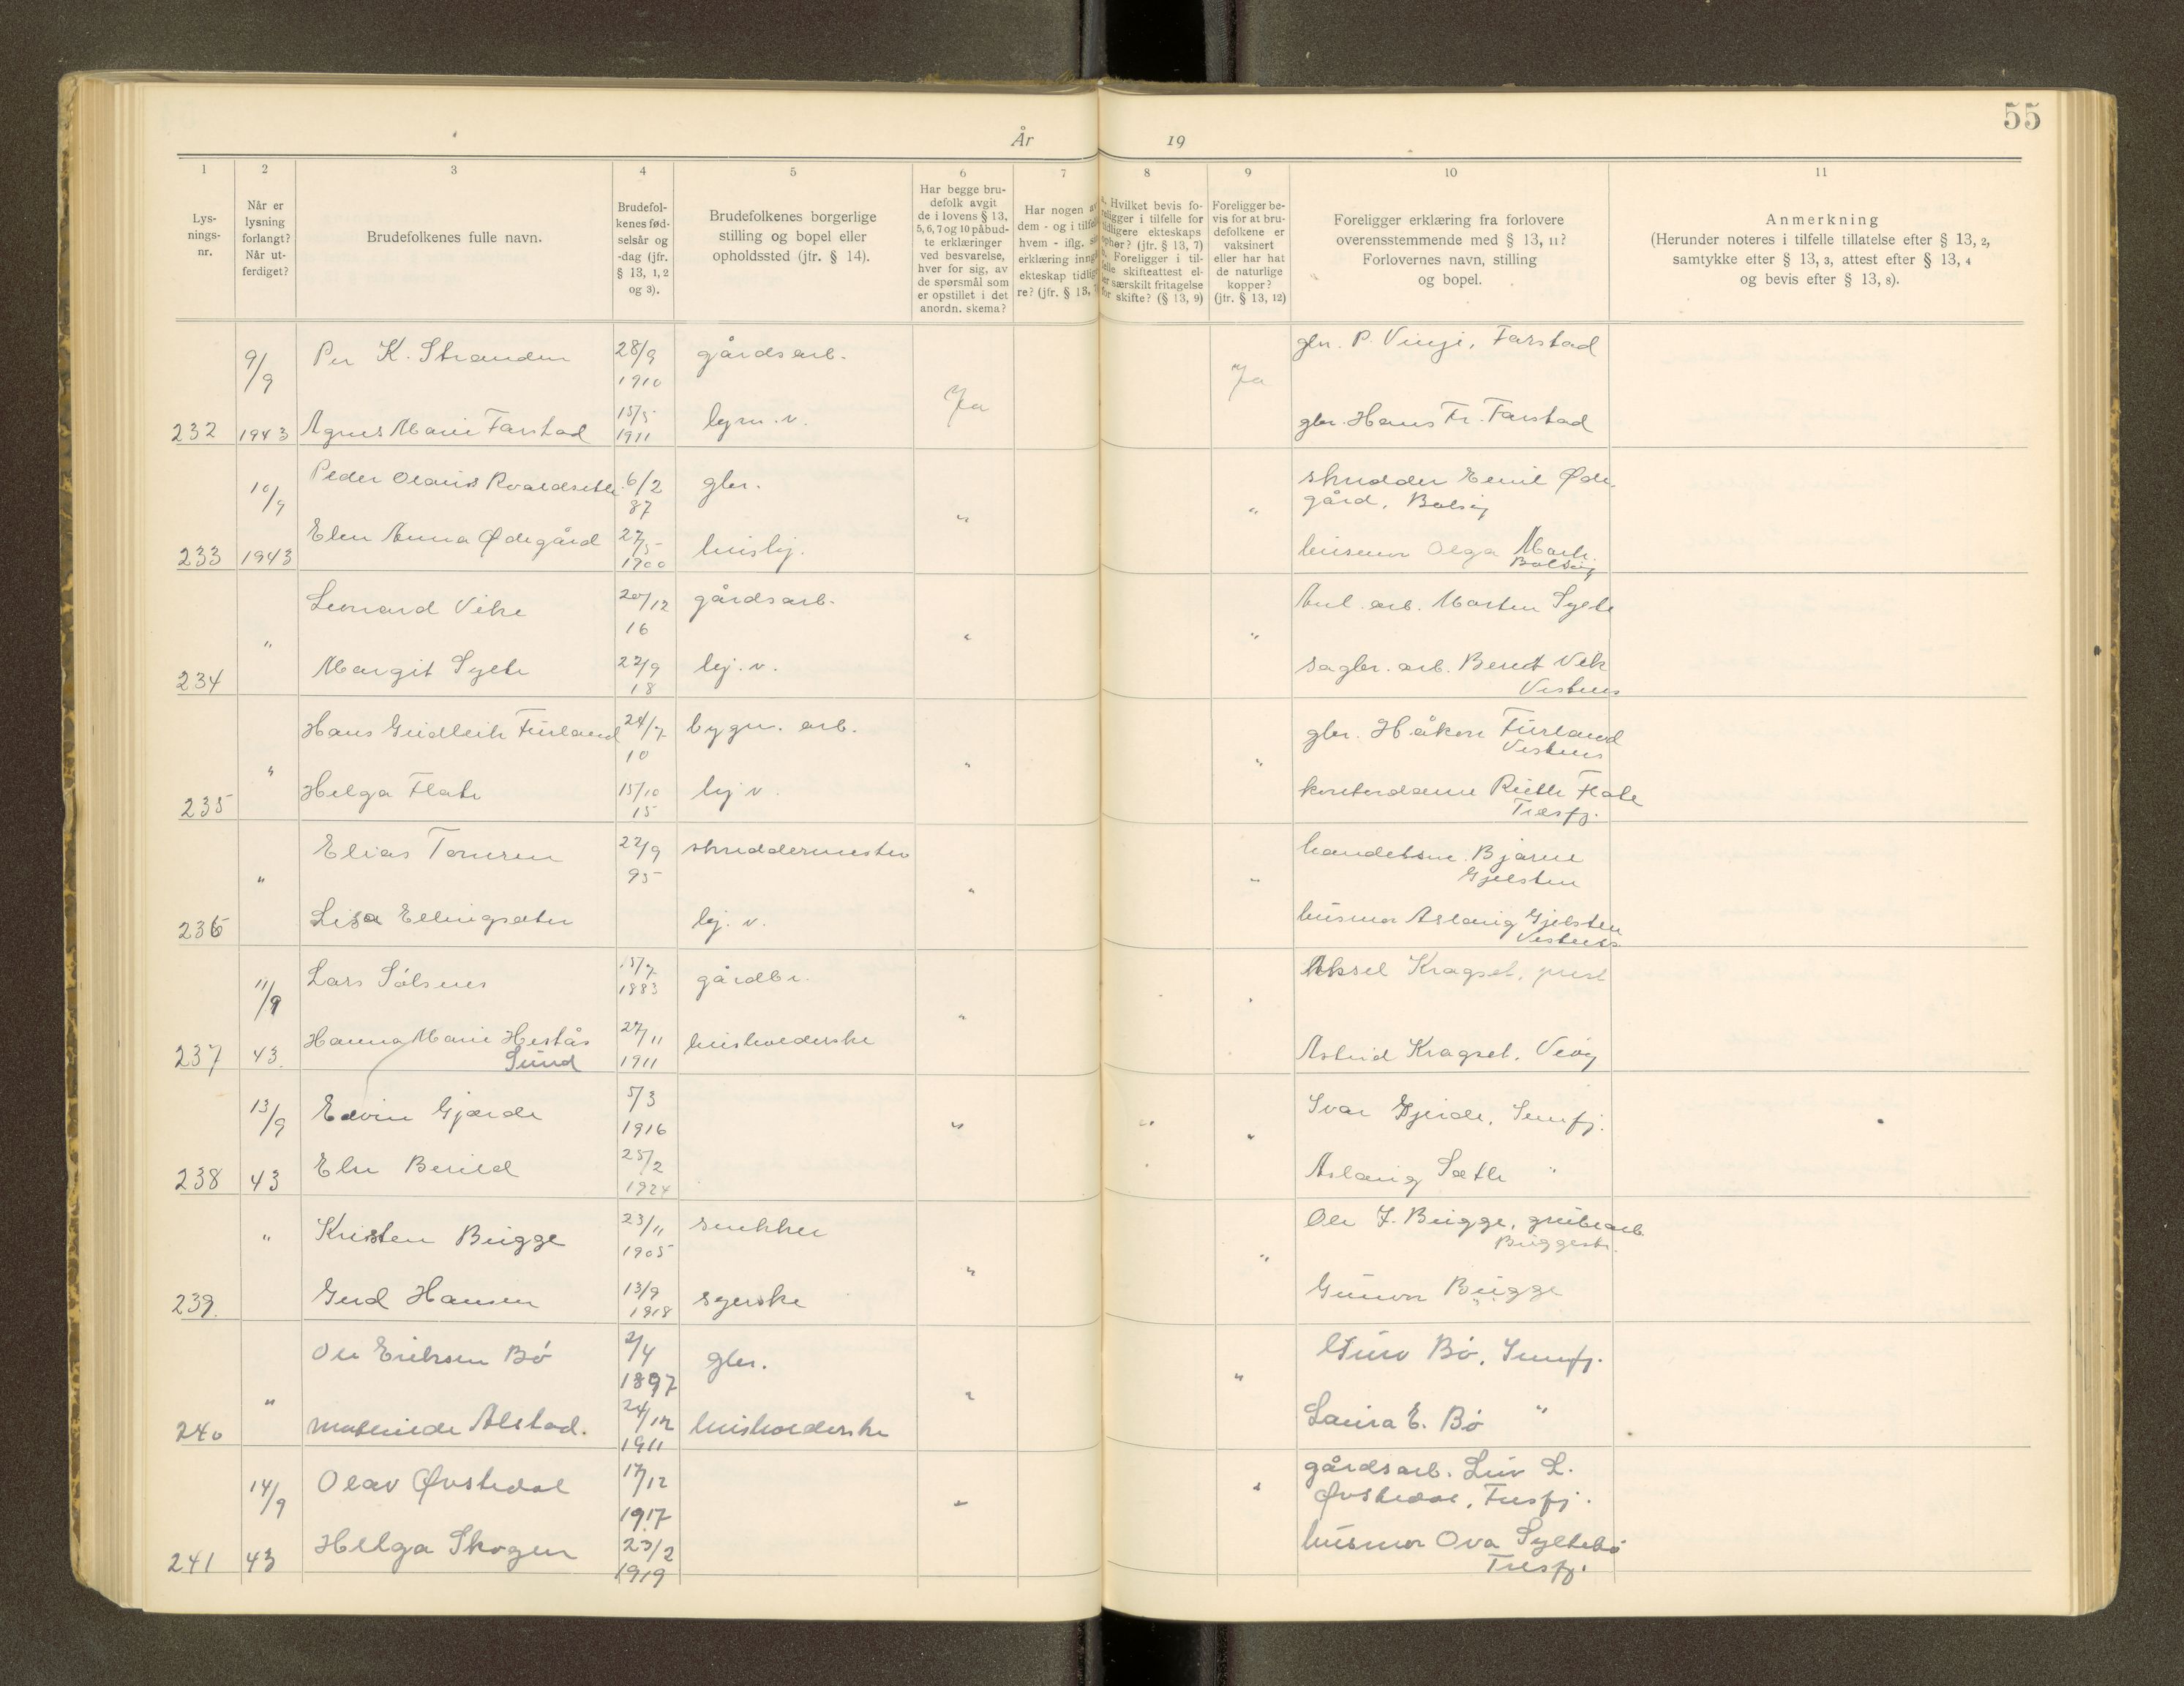 55
År 19
1 2 3 4 5 6 7 8 9 10 11
Lys-
nings-
nr.
Når er
lysning
forlangt?
Når ut-
ferdiget?
Brudefolkenes fulle navn.
Brudefol-
kenes fød-
selsår og
-dag (jfr.
§ 13, 1, 2
og 3).
Brudefolkenes borgerlige
stilling og bopel eller
opholdssted (jfr. § 14).
Har begge bru-
defolk avgit
de i lovens § 13,
5, 6, 7 og 10 påbud-
te erklæringer
ved besvarelse,
hver for sig, av
de spørsmål som
er opstillet i det
anordn. skema?
Har nogen
dem - og i
hvem - iflg.
erklæring
ekteskap
re? (jfr. § 13,
Hvilket bevis fo-
religger i tilfelle for
tidligere ekteskaps
ophør? (jfr. § 13, 7)
Foreligger i til-
felle skifteattest el-
ler særskilt fritagelse
for skifte? (§ 13, 9)
Foreligger be-
vis for at bru-
defolkene er
vaksinert
eller har hat
de naturlige
kopper?
(jfr. § 13, 12)
Foreligger erklæring fra forlovere
overensstemmende med § 13, 11?
Forlovernes navn, stilling
og bopel.
Anmerkning
(Herunder noteres i tilfelle tillatelse efter § 13, 2,
samtykke efter § 13, 3, attest efter § 13, 4
og bevis efter § 13, 8).
9/9 Per K. Stranden 28/9 1910 gårdsarb. Ja Ja gbr. P. Vinje, Farstad
232 1943 Agnes Marie Farstad 15/5 1911 hjm. v. gbr. Hans Fr. Farstad
10/9 Peder Olaus 6/2 87 gbr. " " skredder Emil Øde-
gård, Bolsøy
233 1943 Elen Anna Ødegård 27/5 1900 huslig. husmor Olga
Bolsøy
" Lenard Vike 20/12 16 gårdsarb. " " Anl. arb. Morten Sylte
234 Margit Sylte 22/9 18 hj. v. sagbr. arb. Bernt Vik
Vestnes
" Hans Gudleik Furland 24/7 10 bygn. arb. " " gbr. Håkon Furland
Vestnes
235 Helga Flate 15/10 15 hj v. kontordame Ruth Flate
Tresfj.
" Elias Tomren 22/9 95 skreddermester " " handelsm. Bjarne
Gjelsten
236 Lisa Ellingsæter hj. v. husmor Aslaug Gjelsten
Vestnes
11/9 Lars Sølsnes 15/7 1883 gårdbr. " " Aksel Kragset, prest
237 43. Hanna Marie Hestås
Sund 27/11 1911 husholderske Astrid Kragset, Veøy
13/9 Edvin Gjærde 5/3 1916 " " " Ivar Gjerde, Sunnfj.
238 43 Else 25/2 1924 Aslaug Sætle "
" Kristen Brigge 23/11 1905 snekker " " Ole J. Brigge, grubearb.
Briggestr.
239. Gerd Hansen 13/9 1918 syerske Gunvor Brigge
" Ole Eriksen Bø 2/4 1897 gbr. " " Guro Bø, Sunnfj.
240 Mathilde Alstad. 24/12 1911 husholderske Laura E. Bø "
14/9 Olav Øvstedal 17/12 1917 " " gårdsarb. Leiv L.
Øvstedal, Tresfj.
241 43 Helga Skogen 23/2 1919 husmor Ova Syltebø
Tresfj.